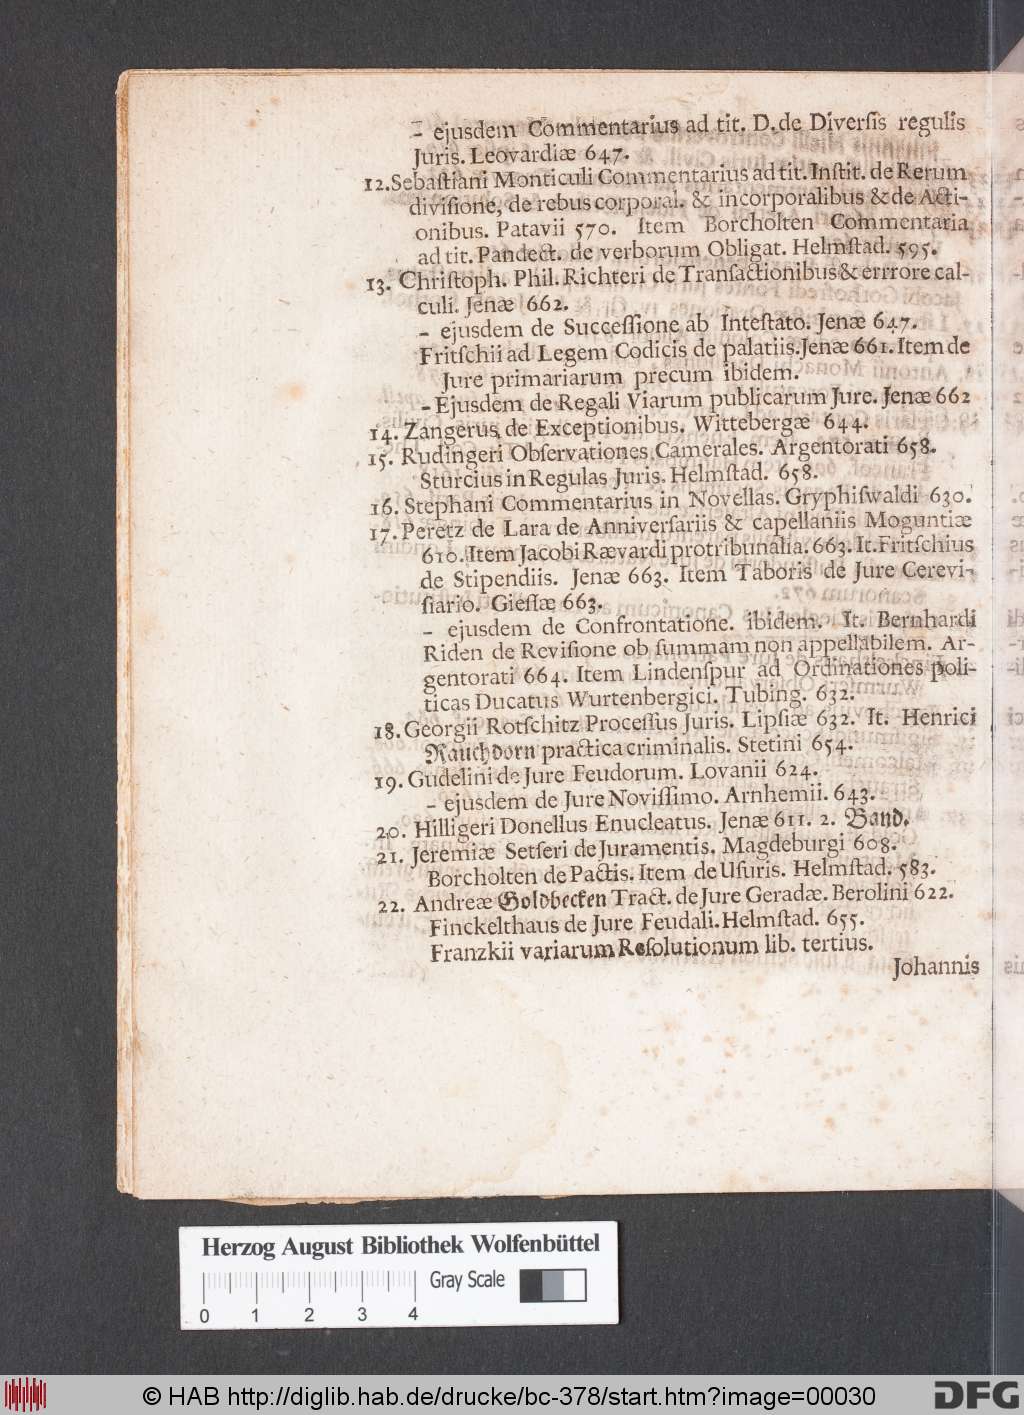 - ejusdem Commentarius ad tit. D. de Diversis regulis
Juris. Leovardiæ 647.
12. Sebastiani Monticuli Commentarius ad tit. Instit. de Rerum
divisione, de rebus corporal. & incorporalibus & de Acti-
onibus. Patavii 570. Item Borcholten Commentaria
ad tit. Pandect. de verborum Obligat. Helmstad. 595.
13. Christoph. Phil. Richteri de Transactionibus & errrore cal-
culi. Jenæ 662.
- ejusdem de Successione ab Intestato. Jenæ 647.
Fritschii ad Legem Codicis de palatiis. Jenæ 661. Item de
Jure primariarum precum ibidem.
- Ejusdem de Regali Viarum publicarum Jure. Jenæ 662
14. Zangerus de Exceptionibus. Wittebergæ 644.
15. Rudingeri Observationes Camerales. Argentorati 658.
Sturcius in Regulas Juris. Helmstad. 658.
16. Stephani Commentarius in Novellas. Gryphiswaldi 630.
17. Peretz de Lara de Anniversariis & capellaniis Moguntiæ
610. Item Jacobi Rævardi protribunalia. 663. It. Fritschius
de Stipendiis. Jenæ 663. Item Taboris de Jure Cerevi-
siario. Giessæ 663.
- ejusdem de Confrontatione. ibidem. It. Bernhardi
Riden de Revisione ob summam non appellabilem. Ar-
gentorati 664. Item Lindenspur ad Ordinationes poli-
ticas Ducatus Wurtenbergici. Tubing. 632.
18. Georgii Rotschitz Processus Juris. Lipsiæ 632. It. Henrici
Rauchdorn practica criminalis. Stetini 654.
19. Gudelini de Jure Feudorum. Lovanii 624.
- ejusdem de Jure Novissimo. Arnhemii. 643.
20. Hilligeri Donellus Enucleatus. Jenæ 611. 2. Band.
21. Jeremiæ Setseri de Juramentis. Magdeburgi 608.
Borcholten de Pactis. Item de Usuris. Helmstad. 583.
22. Andreæ Goldbecken Tract. de Jure Geradæ. Berolini 622.
Finckelthaus de Jure Feudali. Helmstad. 655.
Franzkii variarum Resolutionum lib. tertius.
Johannis
Herzog August Bibliothek Wolfenbüttel
Gray Scale
0 1 2 3 4
© HAB http://diglib.hab.de/drucke/bc-378/start.htm?image=00030
DFG